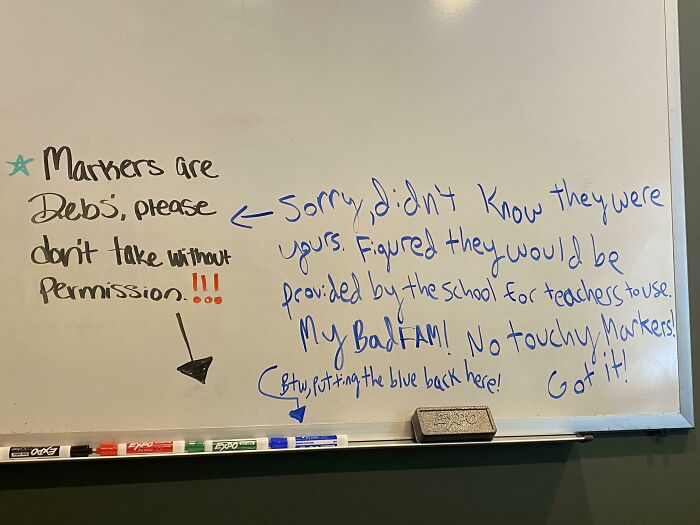 Markers are
Debs', please
don't take without
permission.!!!
Sorry, didn't know they were
yours. Figured they would be
provided by the school for teachers to use.
My Bad FAM! No touchy Markers!
Got it!
Btw, putting the blue back here!
EXPO
EXPO
EXPO
EXPO